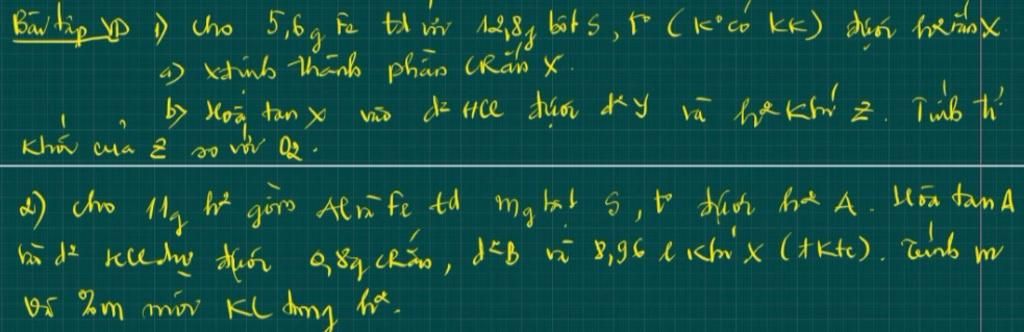 Bài tập VD 1) Cho 5,6g Fe td với 12,8g bột S, t° (k° có KK) được h² rắn X.
a) Xđịnh thành phần CRắn X.
b) Hoà tan X vào d² HCl được d² Y và h² khí Z. Tính tỉ
khối của Z so với O2.
2) Cho 11g h² gồm Al và Fe td m g bột S, t° được h² A. Hoà tan A
d² HCl dư được 0,8g CRắn, d² B và 8,96 l khí X (đktc). Tính m
và %m mỗi KL trong h².